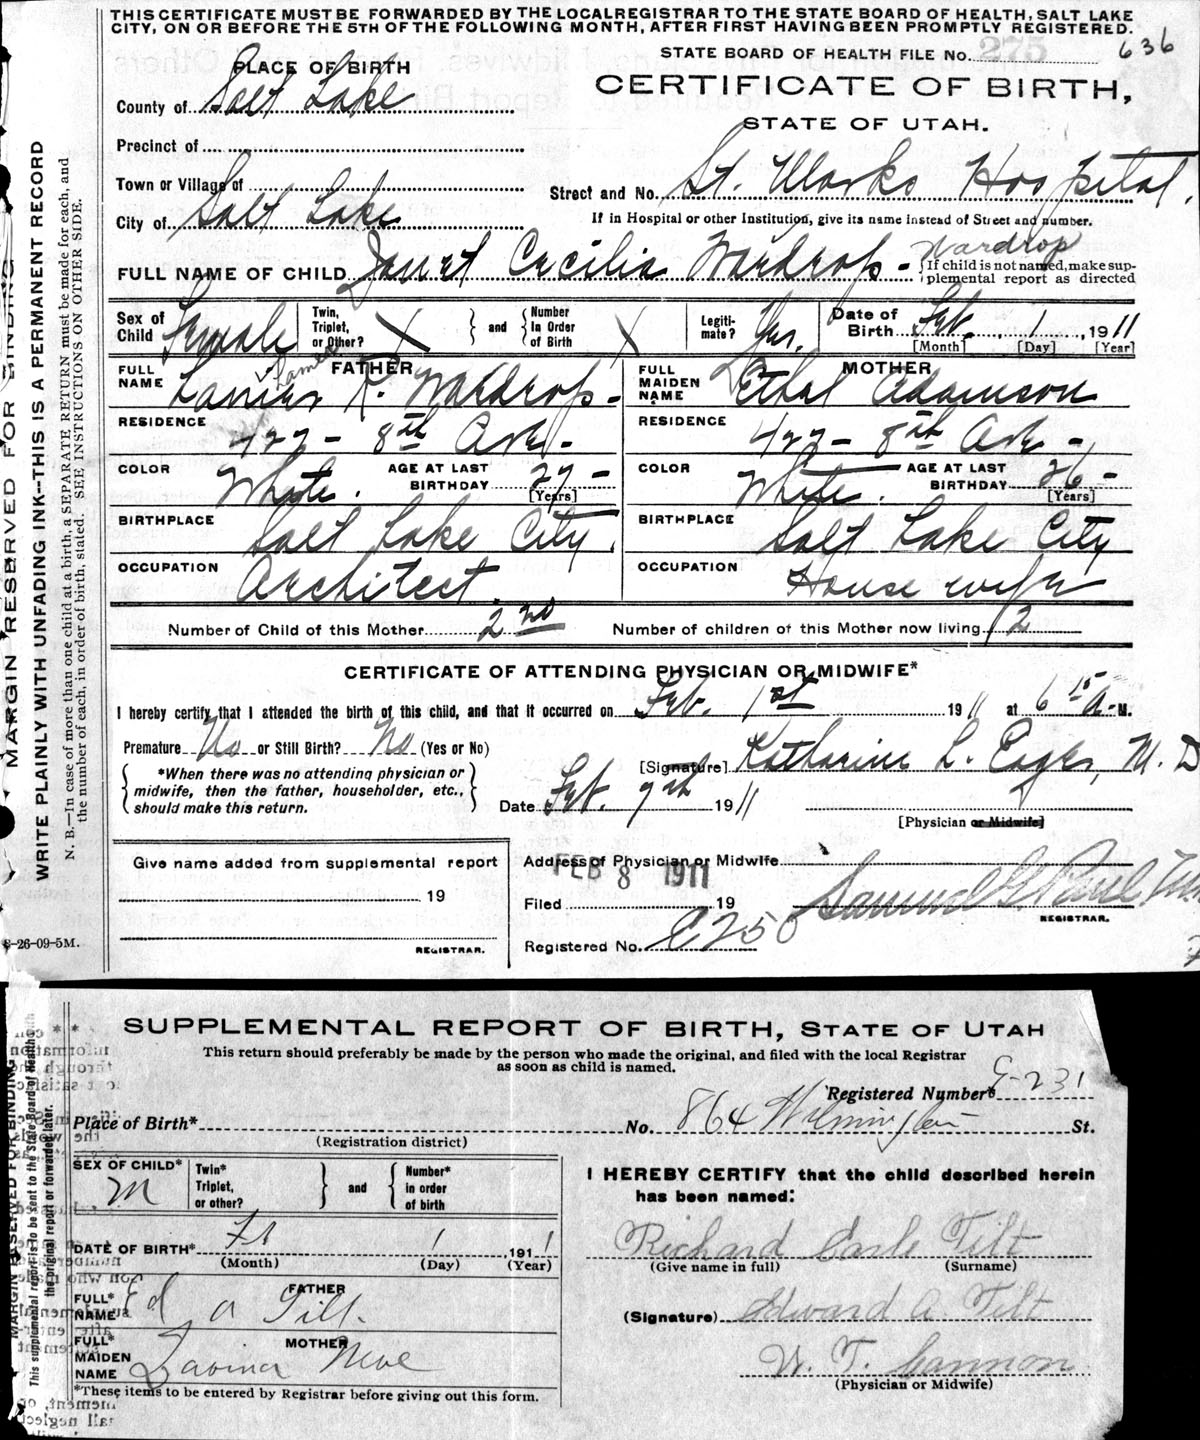 THIS CERTIFICATE MUST BE FORWARDED BY THE LOCAL REGISTRAR TO THE STATE BOARD OF HEALTH, SALT LAKE
CITY, ON OR BEFORE THE 5TH OF THE FOLLOWING MONTH, AFTER FIRST HAVING BEEN PROMPTLY REGISTERED.
STATE BOARD OF HEALTH FILE No. 275 636
PLACE OF BIRTH
CERTIFICATE OF BIRTH,
County of Salt Lake
STATE OF UTAH.
Precinct of
Town or Village of
Street and No. St. Marks Hospital.
City of Salt Lake
If in Hospital or other Institution, give its name instead of Street and number.
Wardrop
FULL NAME OF CHILD Janet Cecilia Wardrop -
If child is not named, make sup-
plemental report as directed
Sex of Child Female
Twin, Triplet, or Other? X and Number In Order of Birth X
Legiti-mate? Yes.
Date of Birth Feb. 1, 1911
[Month] [Day] [Year]
FATHER
FULL NAME James R. Wardrop -
RESIDENCE 427 - 8th Ave -
COLOR White. AGE AT LAST BIRTHDAY 27 -
[Years]
BIRTHPLACE Salt Lake City.
OCCUPATION Architect.
MOTHER
FULL MAIDEN NAME Ethel Adamson
RESIDENCE 427 - 8th Ave -
COLOR White. AGE AT LAST BIRTHDAY 26 -
[Years]
BIRTHPLACE Salt Lake City
OCCUPATION House wife
Number of Child of this Mother 2nd Number of children of this Mother now living 2
CERTIFICATE OF ATTENDING PHYSICIAN OR MIDWIFE*
I hereby certify that I attended the birth of this child, and that it occurred on Feb. 1st 1911 at 6 15 A. M.
Premature No or Still Birth? No (Yes or No)
[Signature] Katharine L. M. D
*When there was no attending physician or
midwife, then the father, householder, etc.,
should make this return.
Date Feb. 7th 1911
[Physician or Midwife]
Give name added from supplemental report
19
REGISTRAR.
Address of Physician or Midwife
FEB 8 1911
Filed 19
Samuel G. Paul
REGISTRAR.
Registered No. C250
8-26-09-5M.
MARGIN RESERVED FOR BINDING
WRITE PLAINLY WITH UNFADING INK--THIS IS A PERMANENT RECORD
N. B.—In case of more than one child at a birth, a SEPARATE RETURN must be made for each, and
the number of each, in order of birth, stated. SEE INSTRUCTIONS ON OTHER SIDE.
SUPPLEMENTAL REPORT OF BIRTH, STATE OF UTAH
This return should preferably be made by the person who made the original, and filed with the local Registrar
as soon as child is named.
Registered Number* C-231
Place of Birth* No. 864 Wilmington St.
(Registration district)
SEX OF CHILD* M
Twin* Triplet, or other? and Number* in order of birth
DATE OF BIRTH* Fb 1, 1911
(Month) (Day) (Year)
FATHER
FULL* NAME Ed A Tilt.
MOTHER
FULL* MAIDEN NAME Lavina
*These items to be entered by Registrar before giving out this form.
I HEREBY CERTIFY that the child described herein
has been named:
Richard Earle Tilt
(Give name in full) (Surname)
(Signature) Edward A Tilt
W. T. Cannon
(Physician or Midwife)
MARGIN RESERVED FOR BINDING
This supplemental report is to be sent to the State Board of Health with
the original report or forwarded later.